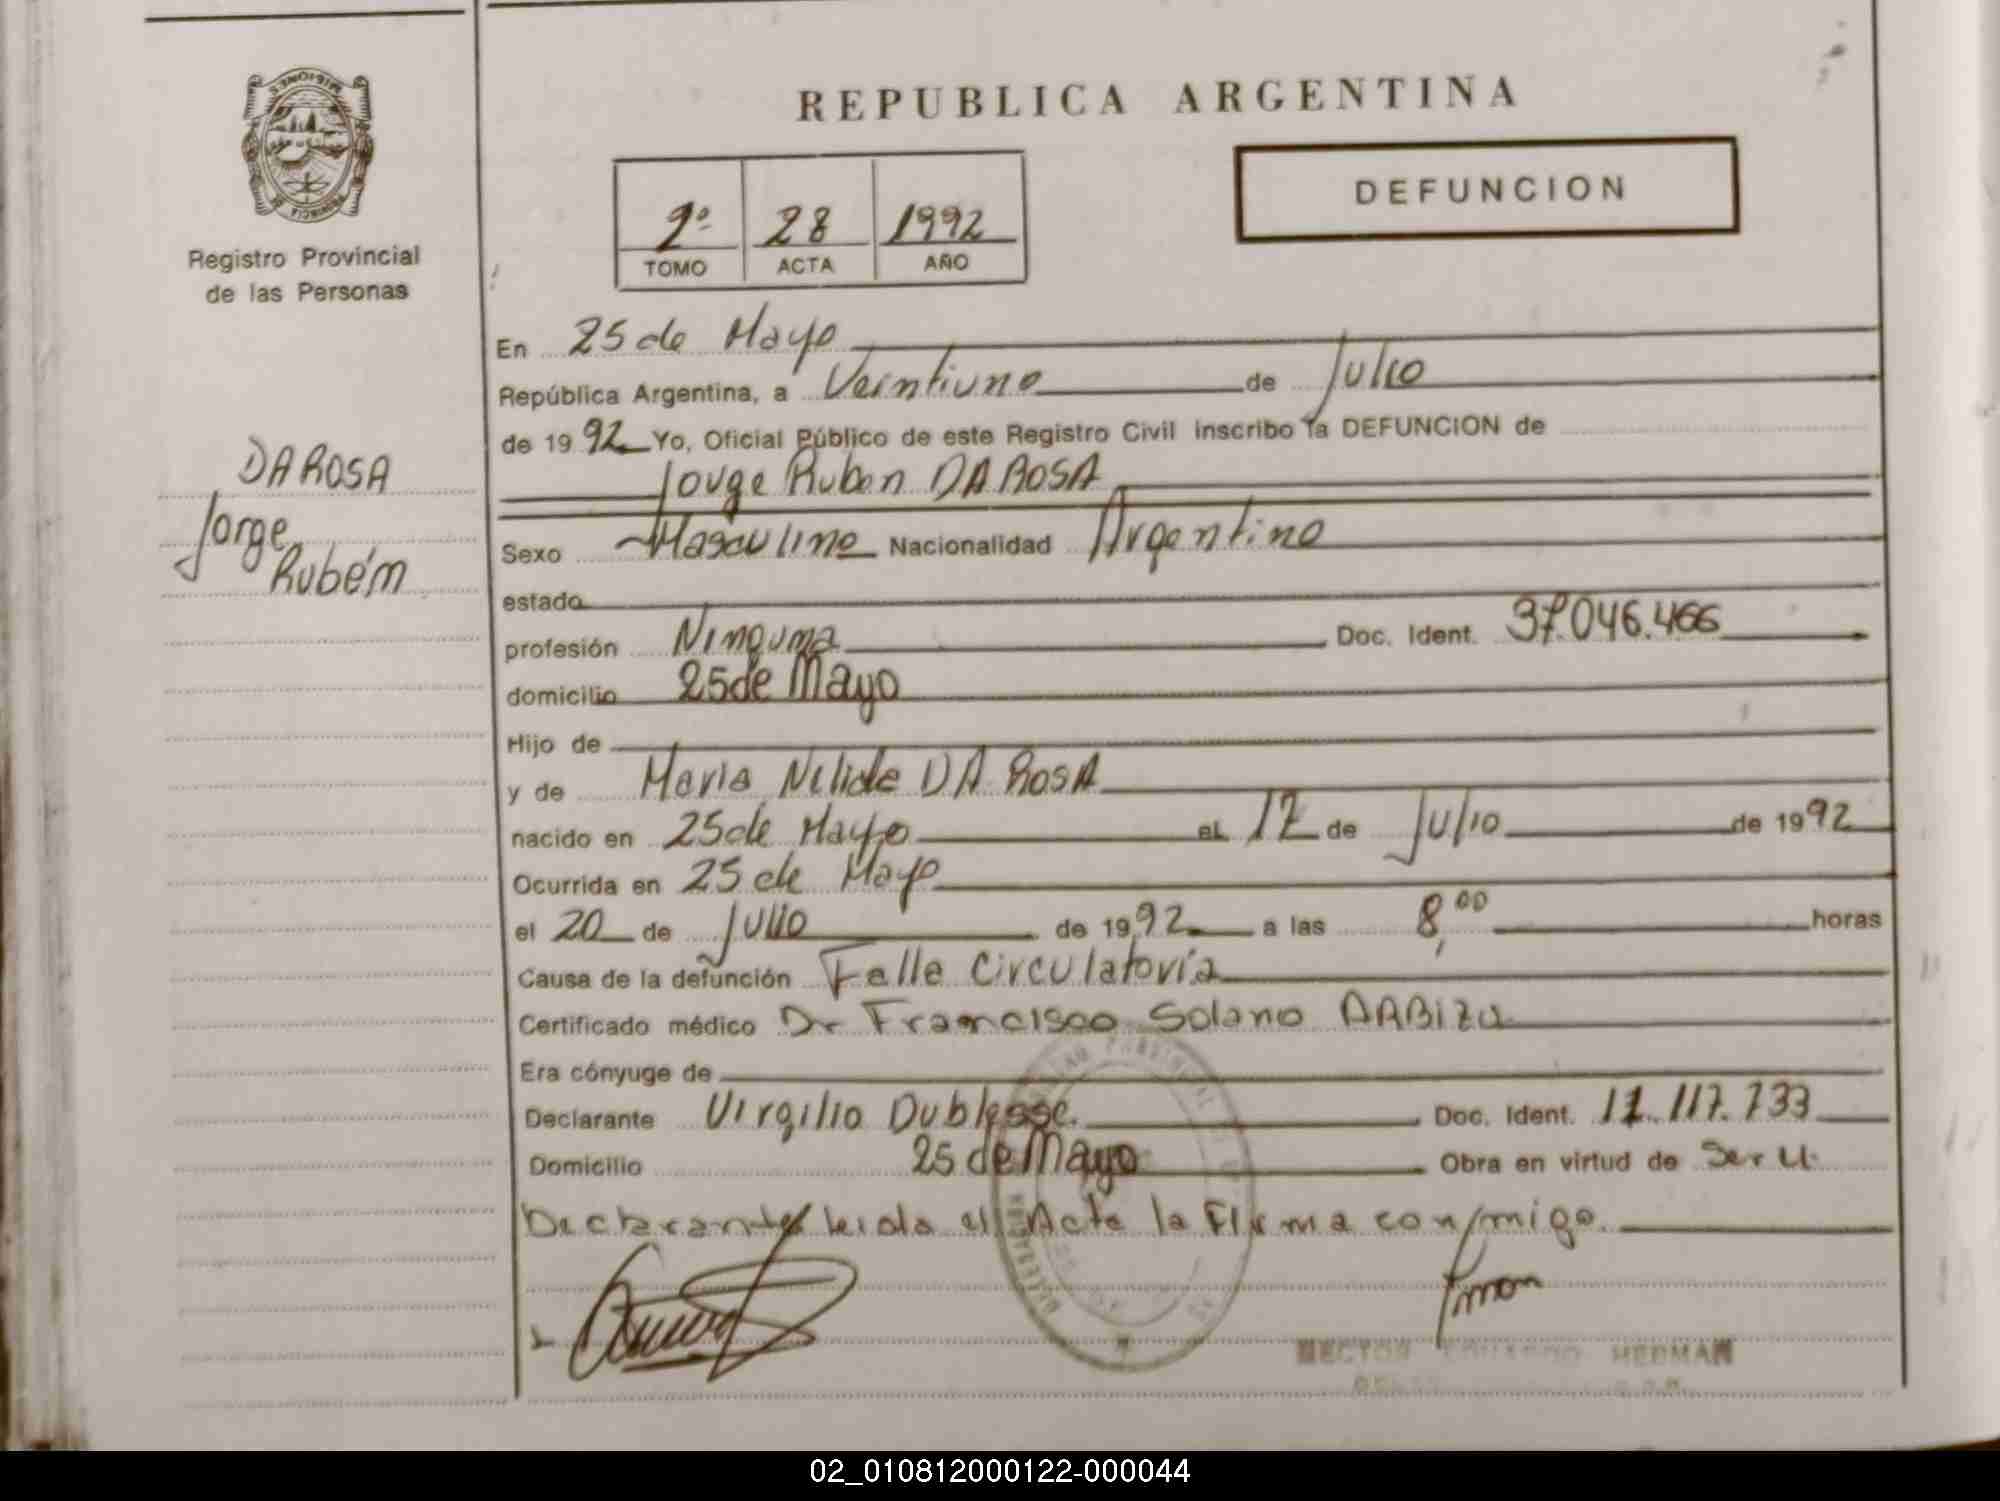 REPUBLICA ARGENTINA
DEFUNCION
MISIONES
PROVINCIA DE
Registro Provincial
de las Personas
2º 28 1992
TOMO ACTA AÑO
En 25 de Mayo
República Argentina, a Veintiuno de Julio
de 1992 Yo, Oficial Público de este Registro Civil inscribo la DEFUNCION de
Jorge Ruben DA ROSA
DA ROSA
Jorge
Rubém
Sexo Masculino Nacionalidad Argentino
estado
profesión Ninguna Doc. Ident. 37.046.466
domicilio 25 de Mayo
Hijo de
y de Maria Nelide DA ROSA
nacido en 25 de Mayo el 17 de Julio de 1992
Ocurrida en 25 de Mayo
el 20 de Julio de 1992 a las 8,00 horas
Causa de la defunción Falle Circulatoria
Certificado médico Dr Francisco Solano ARBIZU
Era cónyuge de
Declarante Virgilio Dublesse. Doc. Ident. 17.117.733
Domicilio 25 de Mayo Obra en virtud de ser u
Declarante leida el Acta la Firma conmigo.
HECTOR EDUARDO HEDMAN
02_010812000122-000044